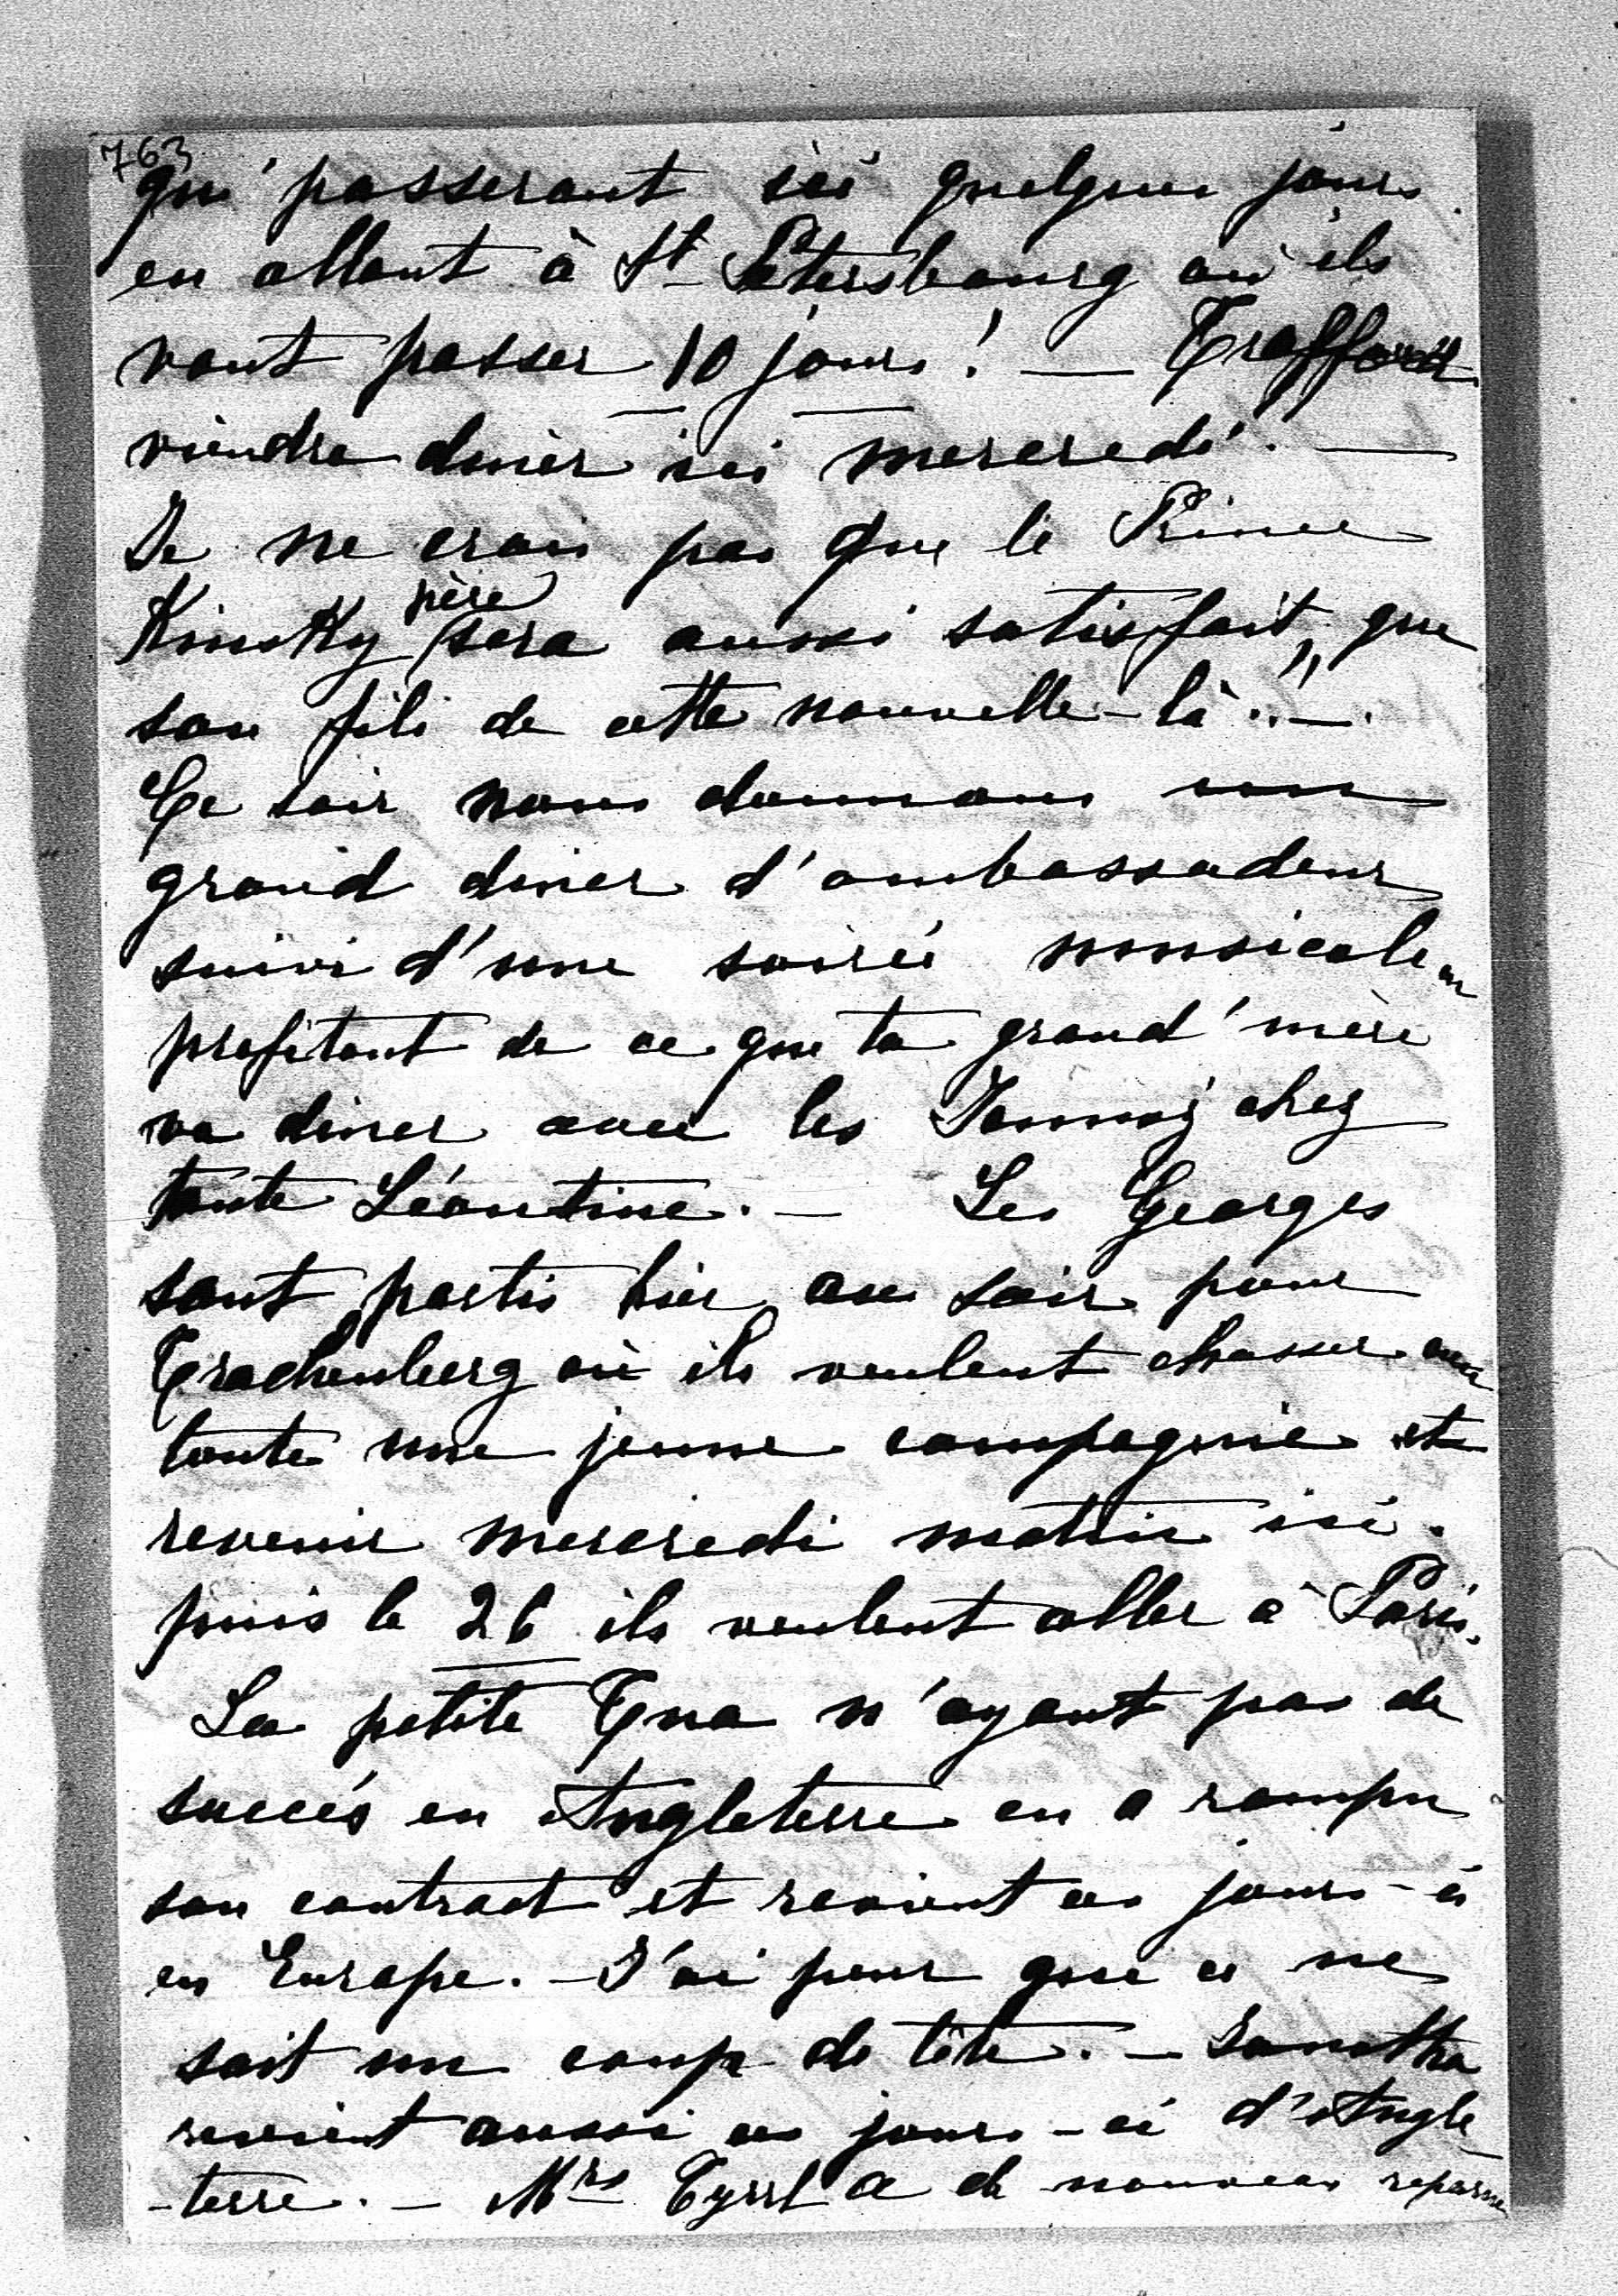 763
qui passeront ici quelques jours
en allant à St Pétersbourg où ils
vont passer 10 jours! — Trafford
viendra diner ici mercredi. —
Je ne crois pas que le Prince
Kinsky père sera aussi satisfait, que
son fils de cette nouvelle-là. —
Ce soir nous donnons un
grand diner d'ambassadeurs
suivi d'une soirée musicale en
profitant de ce que ta grand'mère
va diner avec les chez
tante Léontine. — Les Georges
sont partis hier au soir pour
Trachenberg où ils veulent chasser avec
toute une jeune compagnie et
revenir mercredi matin ici.
puis le 26 ils veulent aller à Paris.
La petite Tua n'ayant pas de
succés en Angleterre en a rompu
son contract et revient ces jours-ci
en Europe. — J'ai peur que ce ne
soit un coup de tête. — Janotha
revient aussi ces jours-ci d'Angle
-terre. — Mrs a de nouveau